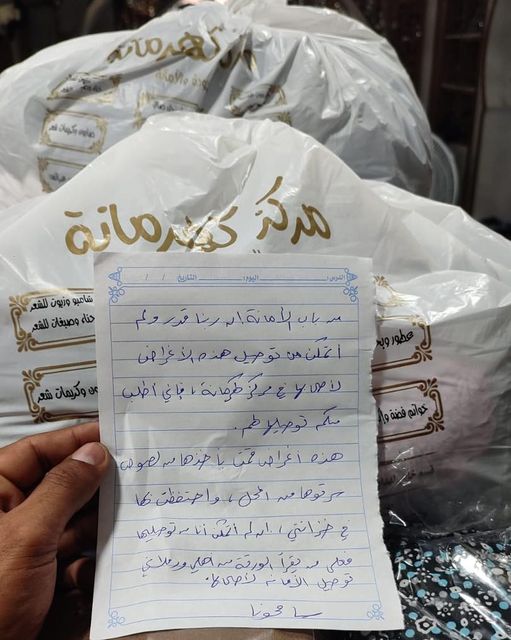 صابون وكريمات شعر
مركز كهرمانة
شامبو وزيوت للشعر
حناء وصبغات للشعر
ون وكريمات شعر
عطور وبخ
خواتم فضة وا
الدرس: اليوم: التاريخ: / /
من باب الأمانة ان ربنا قدر ولم
أتمكن من توصيل هذه الأغراض
لأصحابها في مركز كهرمانة، فإني أطلب
منكم توصيلها لهم.
هذه أغراض قمت بأخذها من لصوص
سرقوها من المحل، واحتفظت بها
في خزانتي، ان لم أتمكن أنا من توصيلها
فعلى من يقرأ الورقة من اهلي وزملائي
توصيل الأمانة لأصحابها.
سامحونا